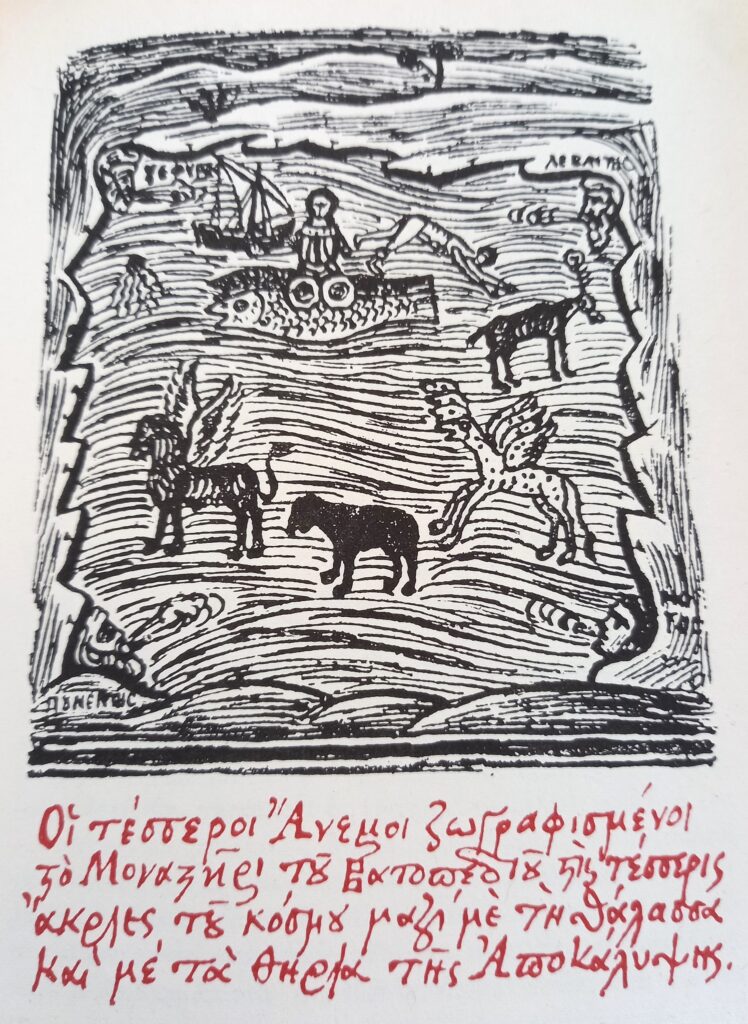 ΛΕΒΑΝΤΗΣ
ΝΟ
ΤΟΣ
ΠΟΥΝΕΝΤΗΣ
Οἱ τέσσεροι Ἄνεμοι ζωγραφισμένοι
στὸ Μοναστῆρι τοῦ Βατοπεδιοῦ στὶς τέσσερις
ἄκριες τοῦ κόσμου μαζὶ μὲ τὴ θάλασσα
καὶ μὲ τὰ θηρία τῆς Ἀποκάλυψης.